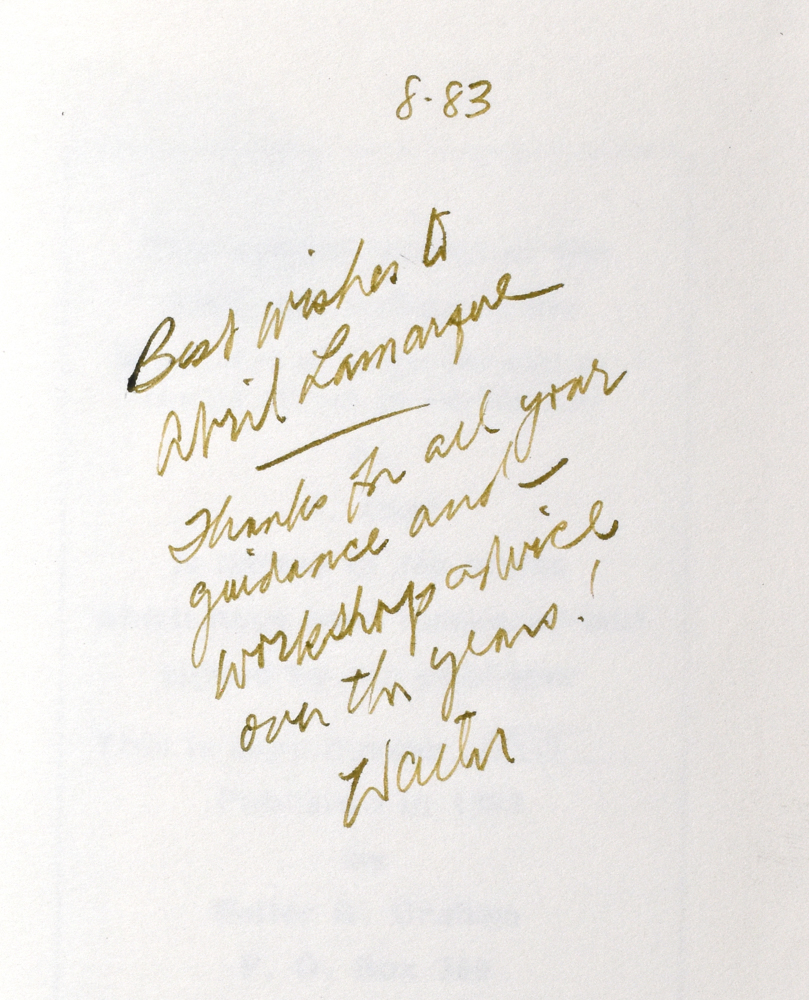 8-83
Best wishes to
April Lamarque
Thanks for all your
guidance and
workshop advice
over the years!
Walter